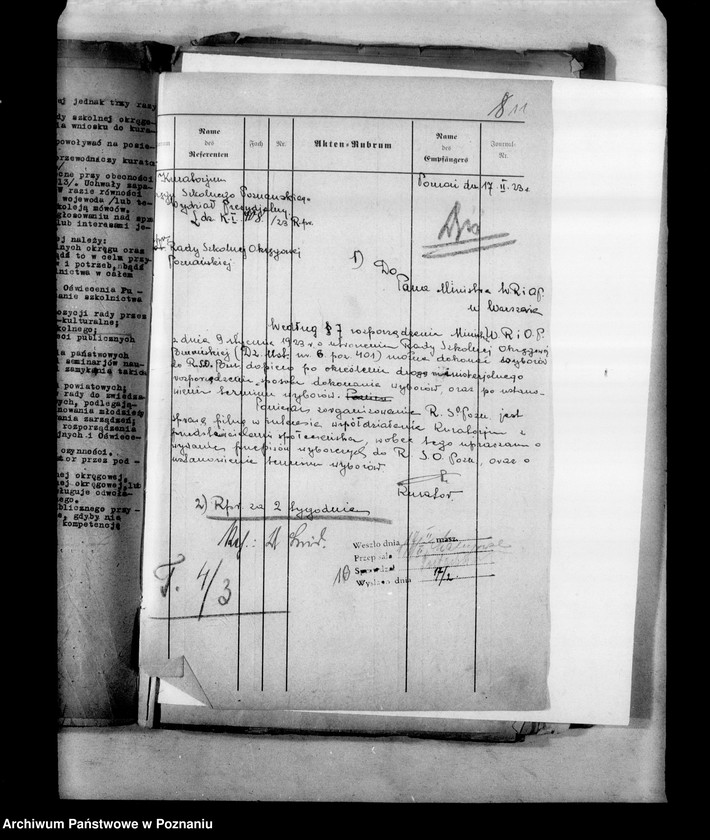 ej jednak trzy razy
dy szkolnej okręgo-
ia wniosku do kura-
powoływać na posie-
przewodniczy kurato
one przy obecności
13/. Uchwały zapa-
w razie równości
wojewoda /lub te-
koleją mówców.
głosowaniu nad spra
lub interesami je-
ej należy:
lnych okręgu oraz
ądź to w celu przy
w i potrzeb, bądź
lnictwa w całem
Oświecenia Pu-
anie szkolnictwa
pozycji rady przez
-kulturalne;
kolnego;
ści publicznych
ia państwowych
seminarjów nau-
zamykania takic
powiatowych;
rady do zwiedza
ych, podlegają-
howania młodzieży
ania zarządzeń;
rozporządzenia
jnych i Oświece-
czynności.
tor przez pod -
nej okręgowej,
nej okręgowej, lub
sługuje odwoła-
nego.
ublicznego przy-
e, gdyby nie
kompetencję
8 11
Name des Referenten
Fach
Nr.
Akten-Rubrum
Name des Empfängers
Journal-Nr.
Kuratorjum
Szkolnego Poznańskiego
Wydział Prezydjalny
L. dz. K.I. /23 Rpr.
Poznań dn 17 II. 23 r.
Rady Szkolnej Okręgowej
Poznańskiej
1) Do
Pana Ministra W R i O P.
w Warszawie
Według § 7 rozporządzenia Minist. W. R i O. P.
z dnia 9 stycznia 1923 r. o utworzeniu Rady Szkolnej Okręgowej
Poznańskiej (Dz. Ust. nr. 6. poz. 401) można dokonać wyborów
do R.S.O. Pozn. dopiero po określeniu drogą ministerjalnego
rozporządzenia sposobu dokonania wyborów, oraz po ustano-
wieniu terminu wyborów.
Ponieważ zorganizowanie R. S. O. Pozn. jest
sprawą pilną w interesie współdziałania Kuratorjum z
przedstawicielami społeczeństwa, wobec tego upraszam o
wydanie przepisów wyborczych do R. S. O. Pozn., oraz o
ustanowienie terminu wyborów
Kurator.
2) Rpr. za 2 tygodnie
Weszło dnia masz.
Przepisała
Sprawdził
Wysłano dnia 17/2.
10
T. 4/3
Archiwum Państwowe w Poznaniu